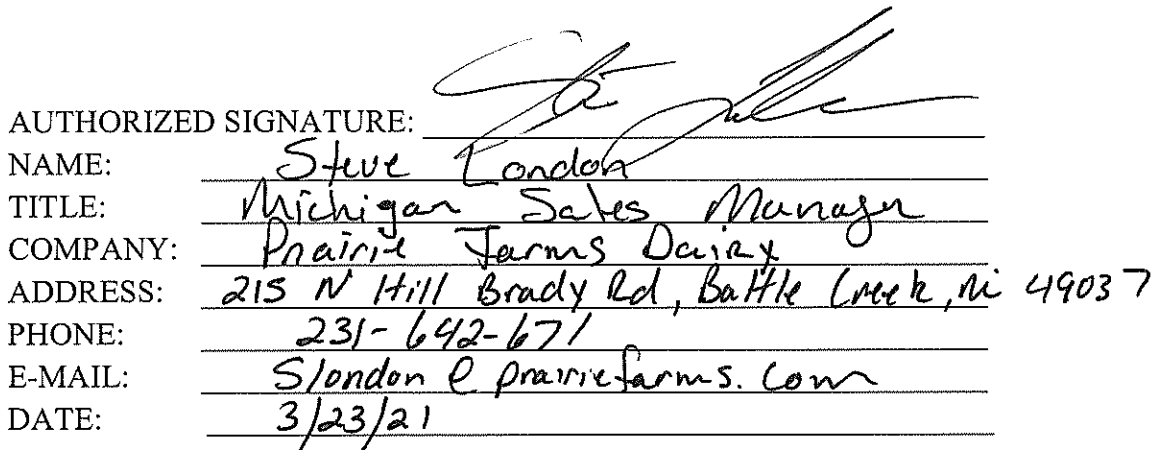 AUTHORIZED SIGNATURE:
NAME: Steve London
TITLE: Michigan Sales Manager
COMPANY: Prairie Farms Dairy
ADDRESS: 215 N Hill Brady Rd, Battle Creek, Mi 49037
PHONE: 231-642-671
E-MAIL: Slondon@prairiefarms.com
DATE: 3/23/21